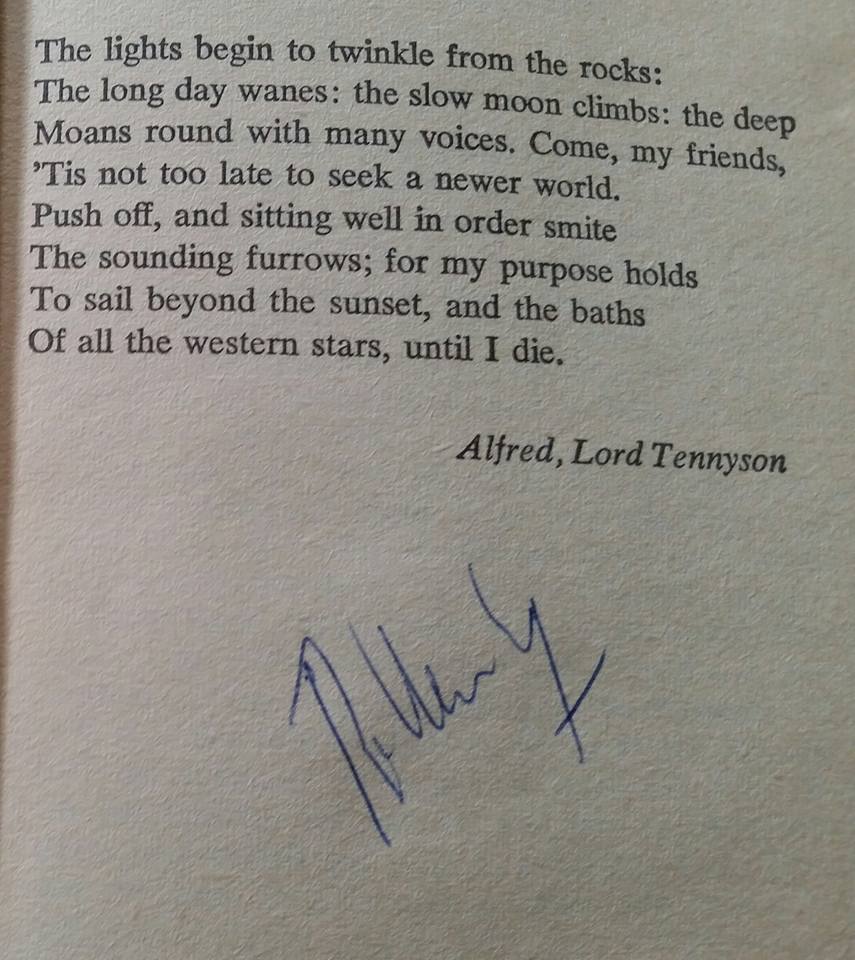 The lights begin to twinkle from the rocks:
The long day wanes: the slow moon climbs: the deep
Moans round with many voices. Come, my friends,
’Tis not too late to seek a newer world.
Push off, and sitting well in order smite
The sounding furrows; for my purpose holds
To sail beyond the sunset, and the baths
Of all the western stars, until I die.
Alfred, Lord Tennyson